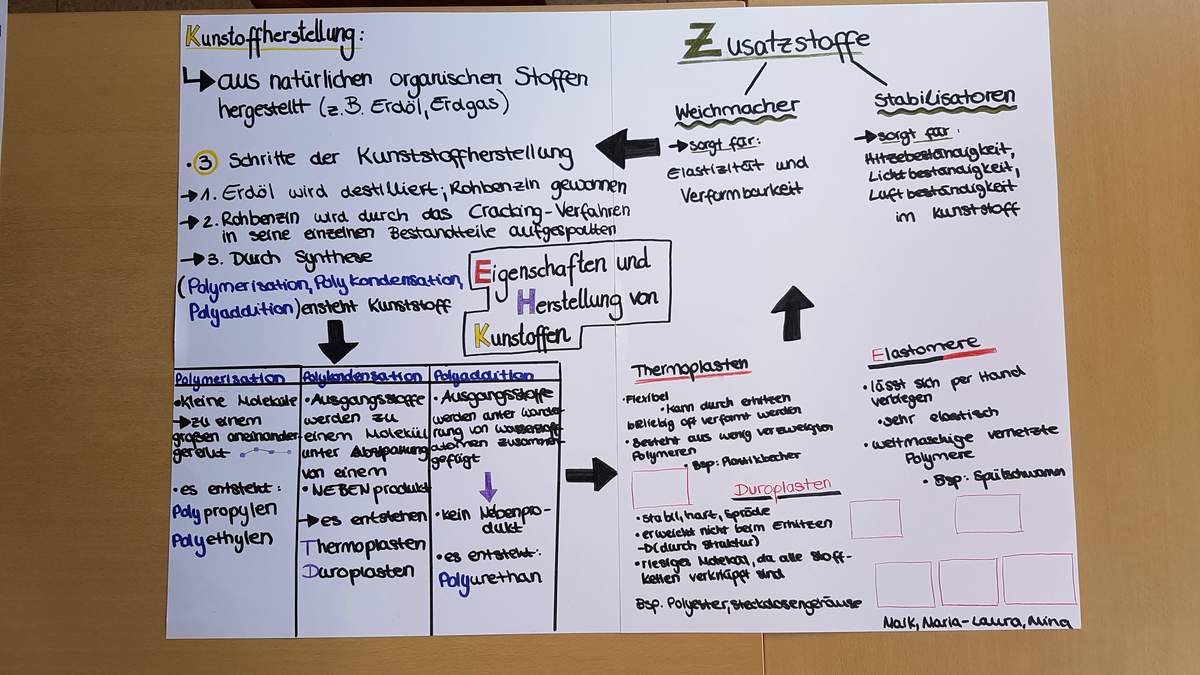 Kunstoffherstellung:
↳ aus natürlichen organischen Stoffen
hergestellt (z.B. Erdöl, Erdgas)
• 3 Schritte der Kunststoffherstellung
→ 1. Erdöl wird destilliert; Rohbenzin gewonnen
→ 2. Rohbenzin wird durch das Cracking-Verfahren
in seine einzelnen Bestandteile aufgespalten
→ 3. Durch Synthese
(Polymerisation, Polykondensation,
Polyaddition) ensteht Kunststoff
Eigenschaften und
Herstellung von
Kunstoffen
Polymerisation
• kleine Moleküle
→ zu einem
großen aneinander
gereiht
• es entsteht:
Polypropylen
Polyethylen
Polykondensation
• Ausgangsstoffe
werden zu
einem Molekül
unter Abspaltung
von einem
• NEBENprodukt
→ es entstehen
Thermoplasten
Duroplasten
Polyaddition
• Ausgangsstoffe
werden unter Wande-
rung von Wasserstoff
atomen zusammen
gefügt
• kein Nebenpro-
dukt
• es entsteht:
Polyurethan
Zusatzstoffe
Weichmacher
→ sorgt für:
Elastizität und
Verformbarkeit
Stabilisatoren
→ sorgt für:
Hitzebeständigkeit,
Lichtbeständigkeit,
Luftbeständigkeit
im Kunststoff
Thermoplasten
• Flexibel
• kann durch erhitzen
beliebig oft verformt werden
• Besteht aus wenig verzweigten
Polymeren
• Bsp: Plastikbecher
Duroplasten
• stabil, hart, Spröde
• erweicht nicht beim Erhitzen
→ (durch Struktur)
• riesiges Molekül, da alle Stoff-
ketten verknüpft sind
Bsp. Polyester, Steckdosengehäuse
Elastomere
• lässt sich per Hand
verbiegen
• sehr elastisch
• weitmaschige vernetzte
Polymere
• Bsp: Spülschwamm
Maik, Maria-Laura, Mina